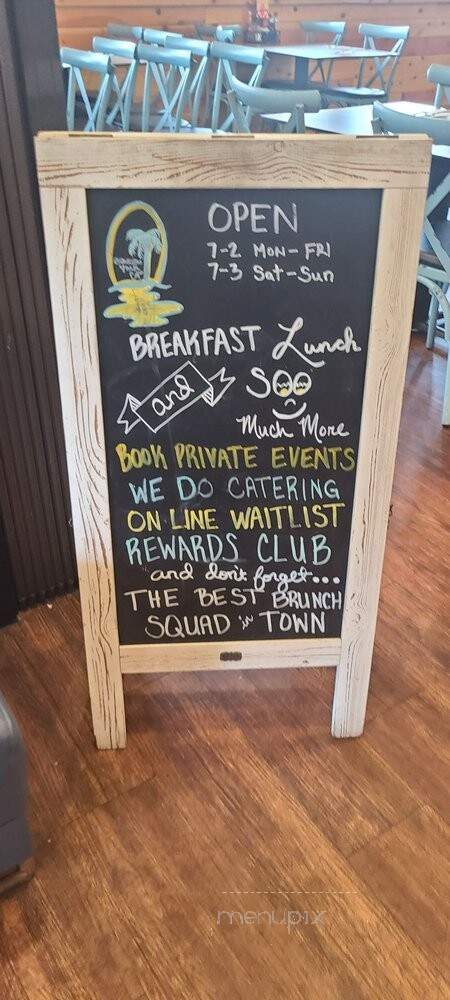 OPEN
7-2 MON-FRI
7-3 Sat-Sun
BREAKFAST Lunch
and Soo
Much More
BOOK PRIVATE EVENTS
WE DO CATERING
ON LINE WAITLIST
REWARDS CLUB
and don't forget...
THE BEST BRUNCH
SQUAD in TOWN
menupix